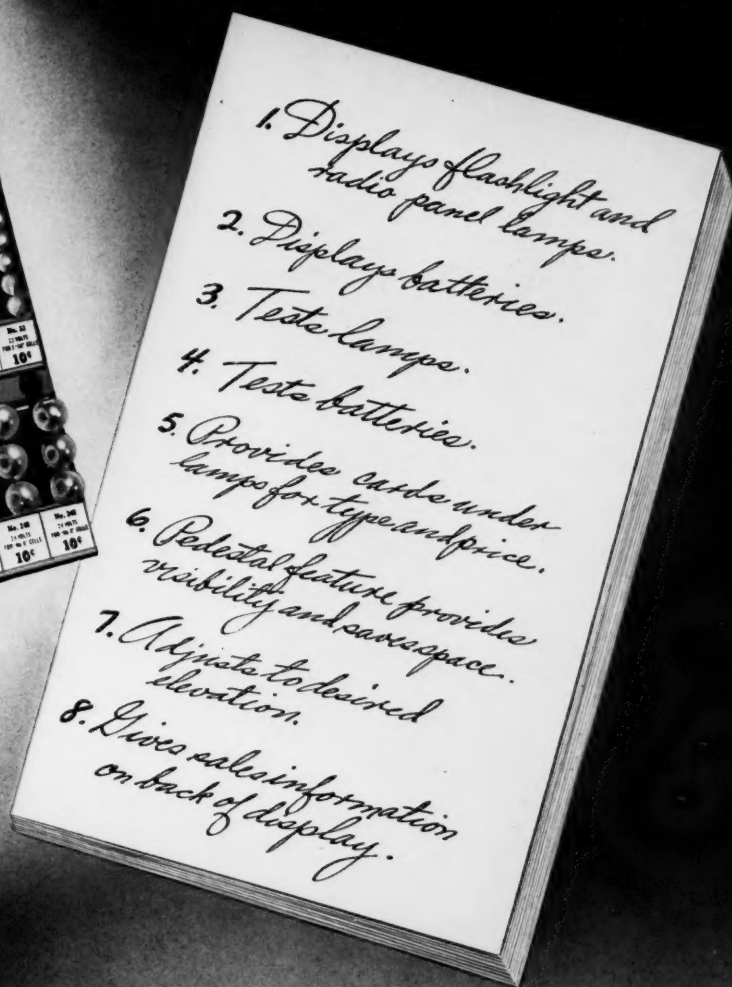 1. Displays flashlight and
radio panel lamps.
2. Displays batteries.
3. Tests lamps.
4. Tests batteries.
5. Provides cards under
lamps for type and price.
6. Pedestal feature provides
visibility and saves space.
7. Adjusts to desired
elevation.
8. Gives sales information
on back of display.
No. 13
10¢
No. 248 No. 248
10¢ 10¢